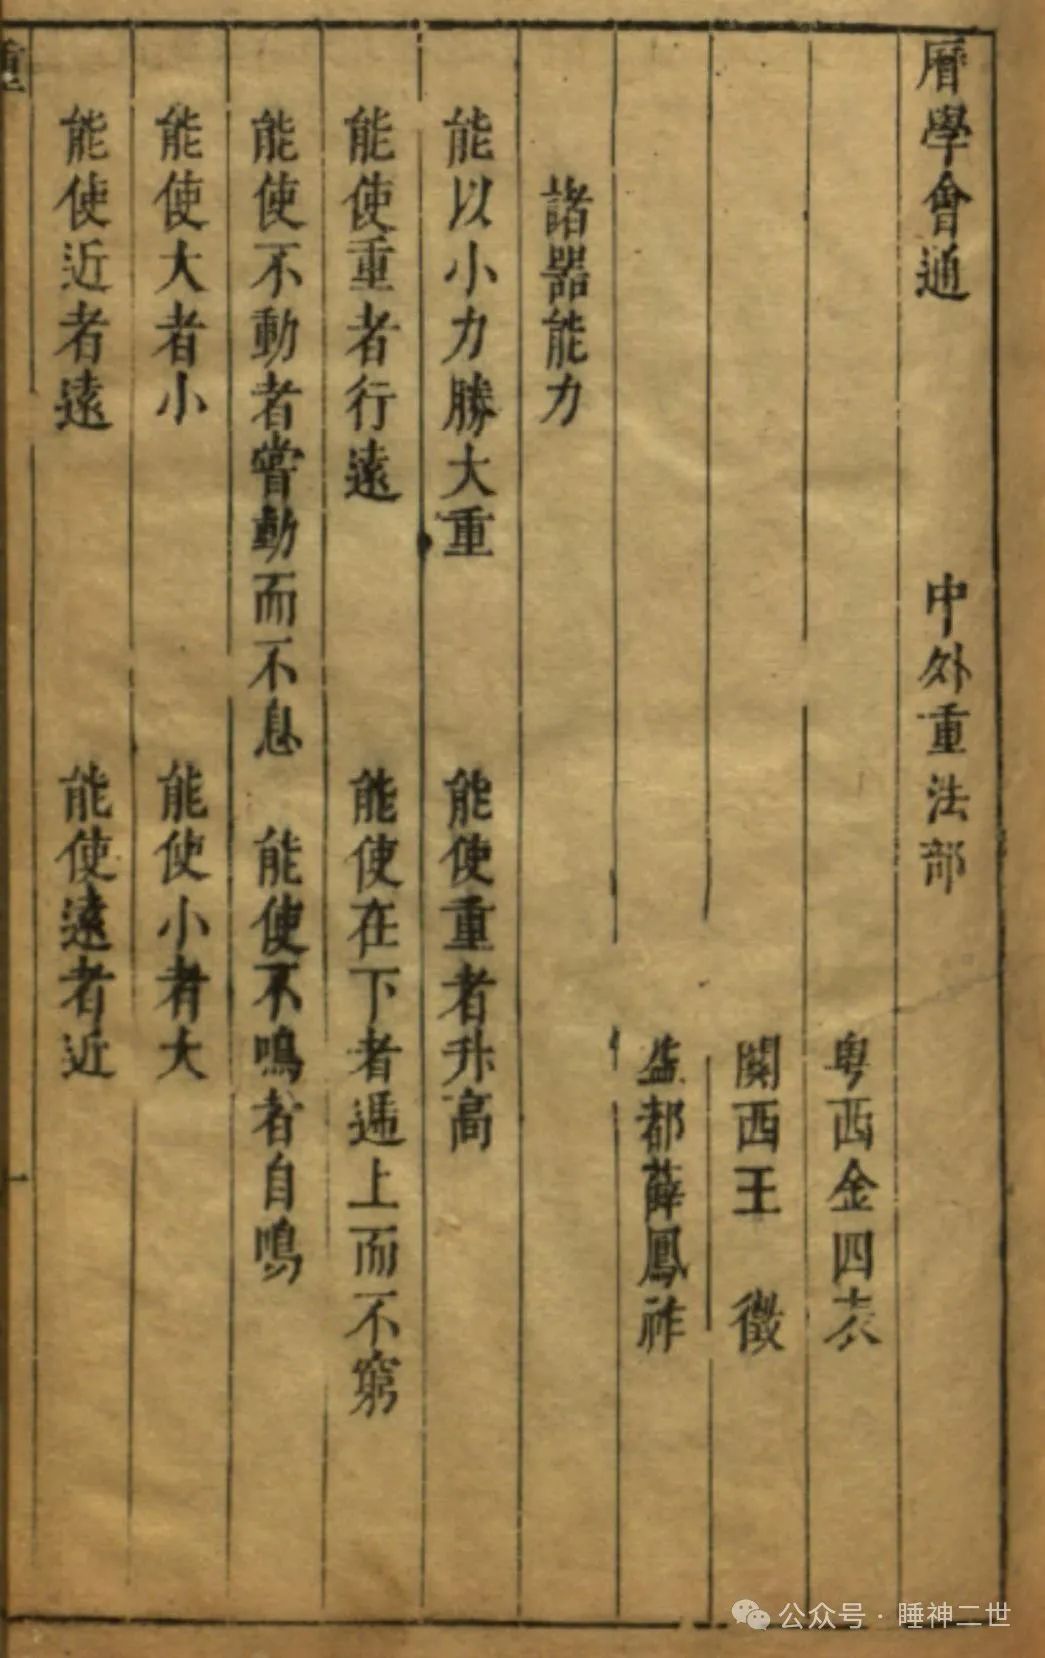 曆學會通　中外重法部
粤西金四表
關西王　徵
益都薛鳳祚
諸器能力
能以小力勝大重　能使重者升高
能使重者行遠　能使在下者遞上而不窮
能使不動者嘗動而不息　能使不鳴者自鳴
能使大者小　能使小者大
能使近者遠　能使遠者近
重
一
公众号·睡神二世